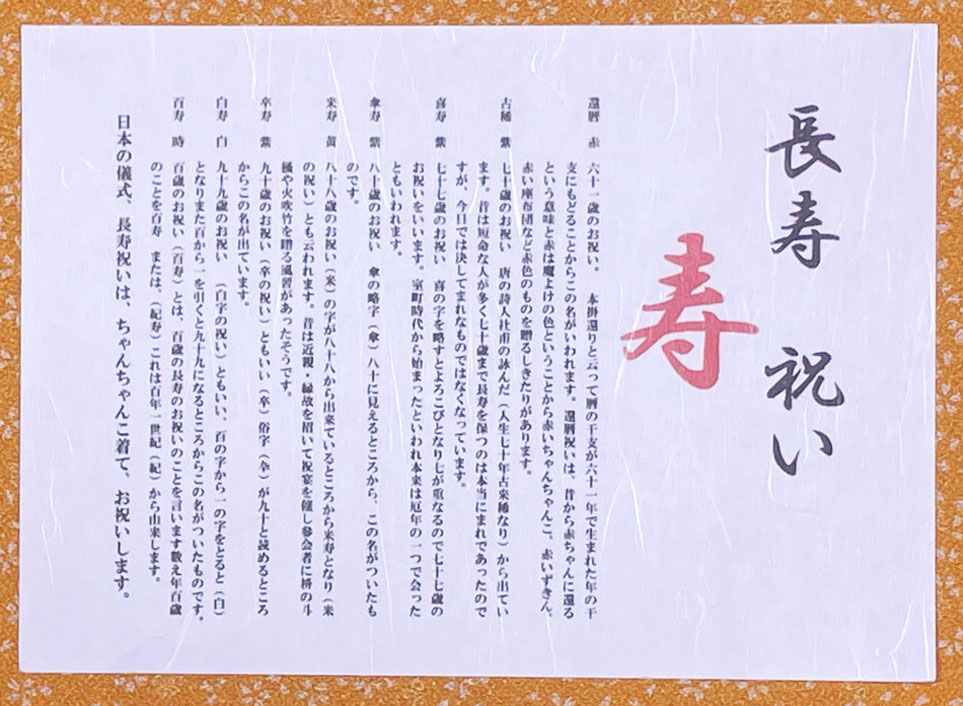 長寿 祝い
寿
還暦 赤 六十一歳のお祝い。 本掛還りと云って暦の干支が六十一年で生まれた年の干
支にもどることからこの名がいわれます。還暦祝いは、昔から赤ちゃんに還る
という意味と赤は魔よけの色ということから赤いちゃんちゃんこ、赤いずきん、
赤い座布団など赤色のものを贈るしきたりがあります。
古稀 紫 七十歳のお祝い 唐の詩人杜甫の詠んだ（人生七十年古来稀なり）から出てい
ます。昔は短命な人が多く七十歳まで長寿を保つのは本当にまれであったので
すが、今日では決してまれなものではなくなっています。
喜寿 紫 七十七歳のお祝い 喜の字を略すとよろこびとなり七が重なるので七十七歳の
お祝いをいいます。室町時代から始まったといわれ本来は厄年の一つで会った
ともいわれます。
傘寿 紫 八十歳のお祝い 傘の略字（傘）八十に見えるところから、この名がついたも
のです。
米寿 黄 八十八歳のお祝い（米）の字が八十八から出来ているところから米寿となり（米
の祝い）とも云われます。昔は近親・縁故を招いて祝宴を催し参会者に枡の斗
掻や火吹竹を贈る風習があったそうです。
卒寿 紫 九十歳のお祝い（卒の祝い）ともいい（卒）俗字（卆）が九十と読めるところ
からこの名が出ています。
白寿 白 九十九歳のお祝い （白字の祝い）ともいい、百の字から一の字をとると（白）
となりまた百から一を引くと九十九になるところからこの名がついたものです。
百寿 時 百歳のお祝い（百寿）とは、百歳の長寿のお祝いのことを言います数え年百歳
のことを百寿 または、（紀寿）これは百年一世紀（紀）から由来します。
日本の儀式、長寿祝いは、ちゃんちゃんこ着て、お祝いします。